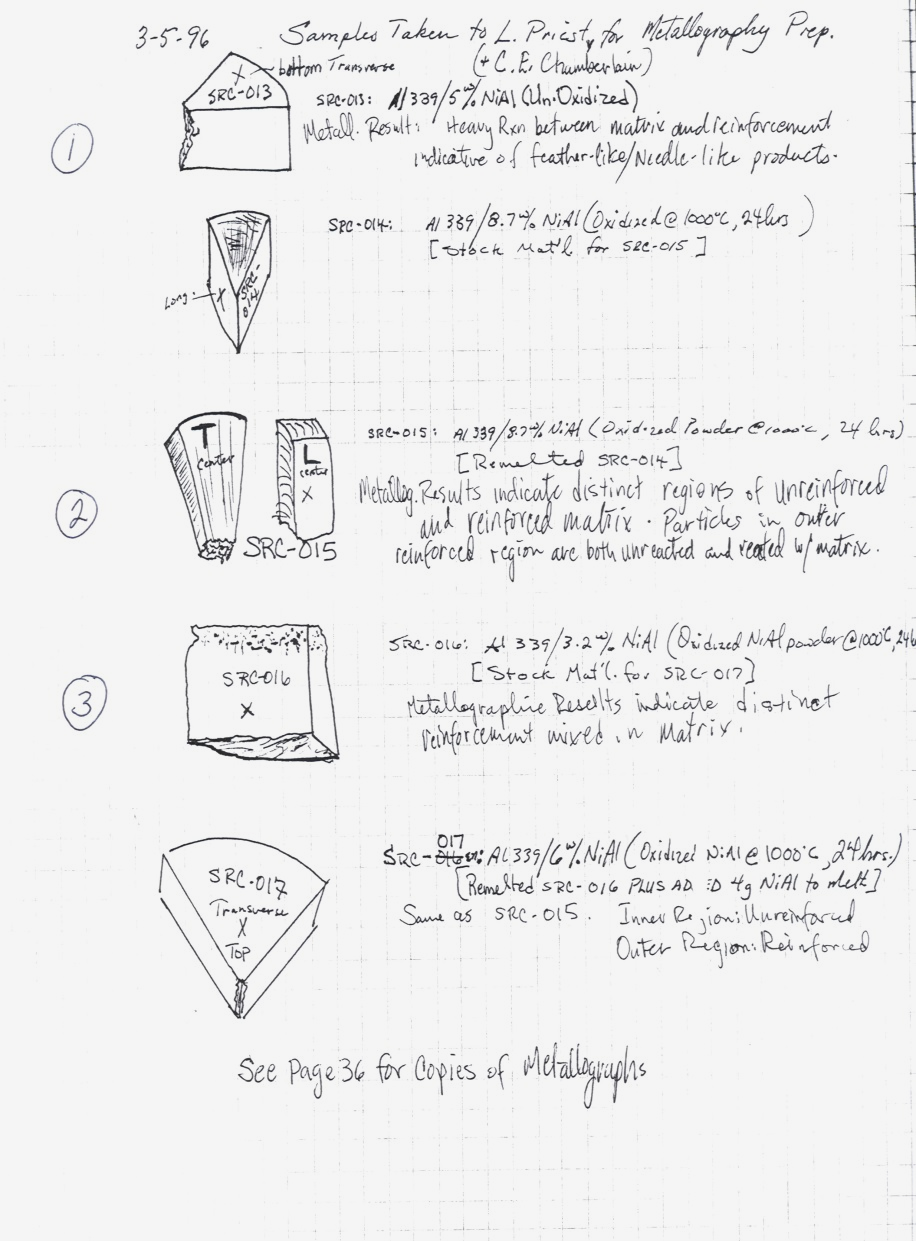 3-5-96 Samples Taken to L. Priest, for Metallography Prep.
(+ C.E. Chamberlain)
X bottom Transverse
SRC-013
SRC-013: Al 339/5 w% NiAl (Un-Oxidized)
Metall. Result: Heavy Rxn between matrix and reinforcement
indicative of feather-like/Needle-like products.
1
SRC-014: Al 339/8.7 w% NiAl (Oxidized @ 1000°C, 24hrs)
[Stock Mat'l for SRC-015]
Long: X
SRC-
014
SRC-015: Al 339/8.7 w% NiAl (Oxidized Powder @ 1000°C, 24 hrs)
[Remelted SRC-014]
T
center
L
center
X
SRC-015
2
Metallog. Results indicate distinct regions of Unreinforced
and reinforced matrix. Particles in outer
reinforced region are both unreacted and reacted w/ matrix.
SRC-016: Al 339/3.2 w% NiAl (Oxidized NiAl powder @ 1000°C, 24h
[Stock Mat'l. for SRC-017]
SRC-016
X
3
Metallographic Results indicate distinct
reinforcement mixed in Matrix.
017
SRC-016: Al 339/6 w% NiAl (Oxidized NiAl @ 1000°C, 24 hrs.)
[Remelted SRC-016 PLUS ADDED 4g NiAl to melt]
Same as SRC-015. Inner Region: Unreinforced
Outer Region: Reinforced
SRC-017
Transverse
X
TOP
See Page 36 for Copies of Metallographs